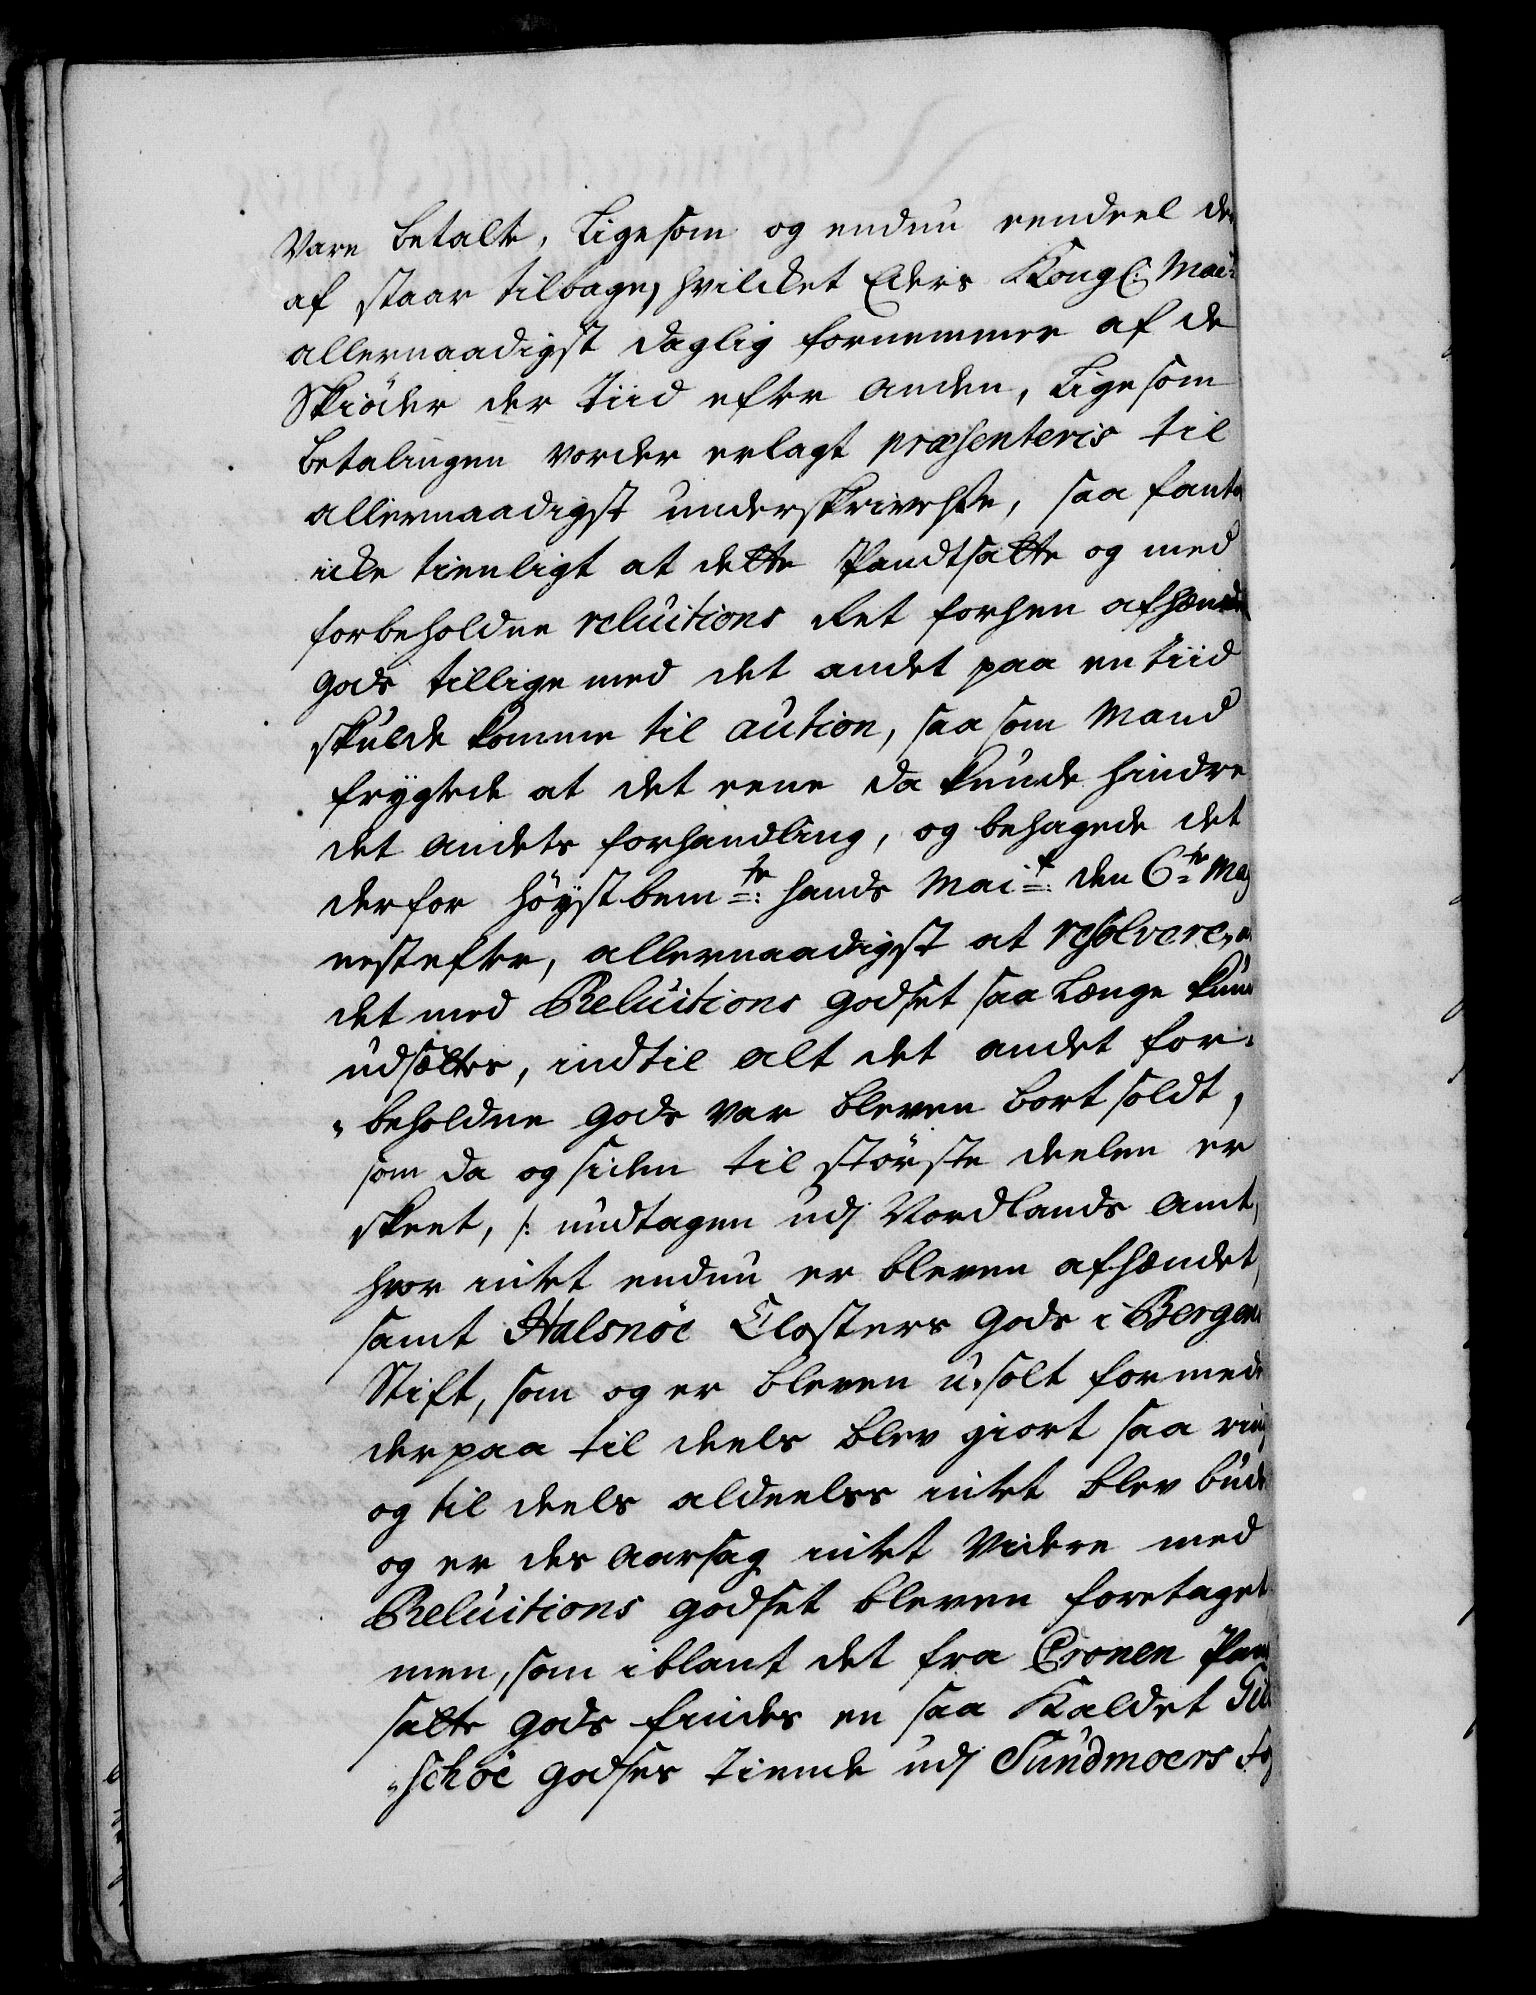 Vare betalte, Ligesom og endnu eendeel der
af staar tilbage, hvilcket Eders Kongl: Mait:
allernaadigst daglig fornemmer af de
Skiöder der tiid efter anden, Ligesom
betalingen vorder erlagt præsenteris til
allernaadigst underskrivelse, saa fantes
icke tienligt at dette Pandtsatte og med
forbeholden reluitions Ret forhen afhændede
gods tillige med det andet paa en tiid
skulde komme til aution, saa som Mand
frygtede at det eene da kunde hindre
det andets forhandling, og behagede det
derfor höystbemte: hands Mait: den 6te May
nestefter, allernaadigst at resolvere, at
det med Reluitions godset saa Længe kunde
udsættes, indtil alt det andet for-
beholdne gods var bleven bort soldt,
som da og siden til störste deelen er
skeet, /: undtagen udj Nordlands Amt,
hvor intet endnu er bleven afhændet,
samt Halsnöe Closters gods i Bergens
Stift, som og er bleven u-solt formedelst
derpaa til deels blev giort saa ringe
og til deels aldeeles intet blev budet
og er des aarsag intet Videre med
Reluitions godset bleven foretaget
men, som iblant det fra Cronen Pant
satte gods findes en saa Kaldet Gi
schöe godses tiende udj Sundmoers